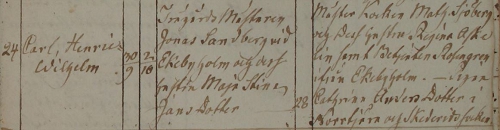 24 Carl, Henric
Wilhelm 30/9 2/10
Trägårds Mästaren
Jonas Sandberg vid
Ekebyholm och dess
hustru Maja Stina
Jans Dotter
Mäster Kocken Math. Sjöberg
och dess hustru Regina
samt
Ekebyholm.
28 Catrina Anders Dotter i
Norrtjära och Skederids Sochn